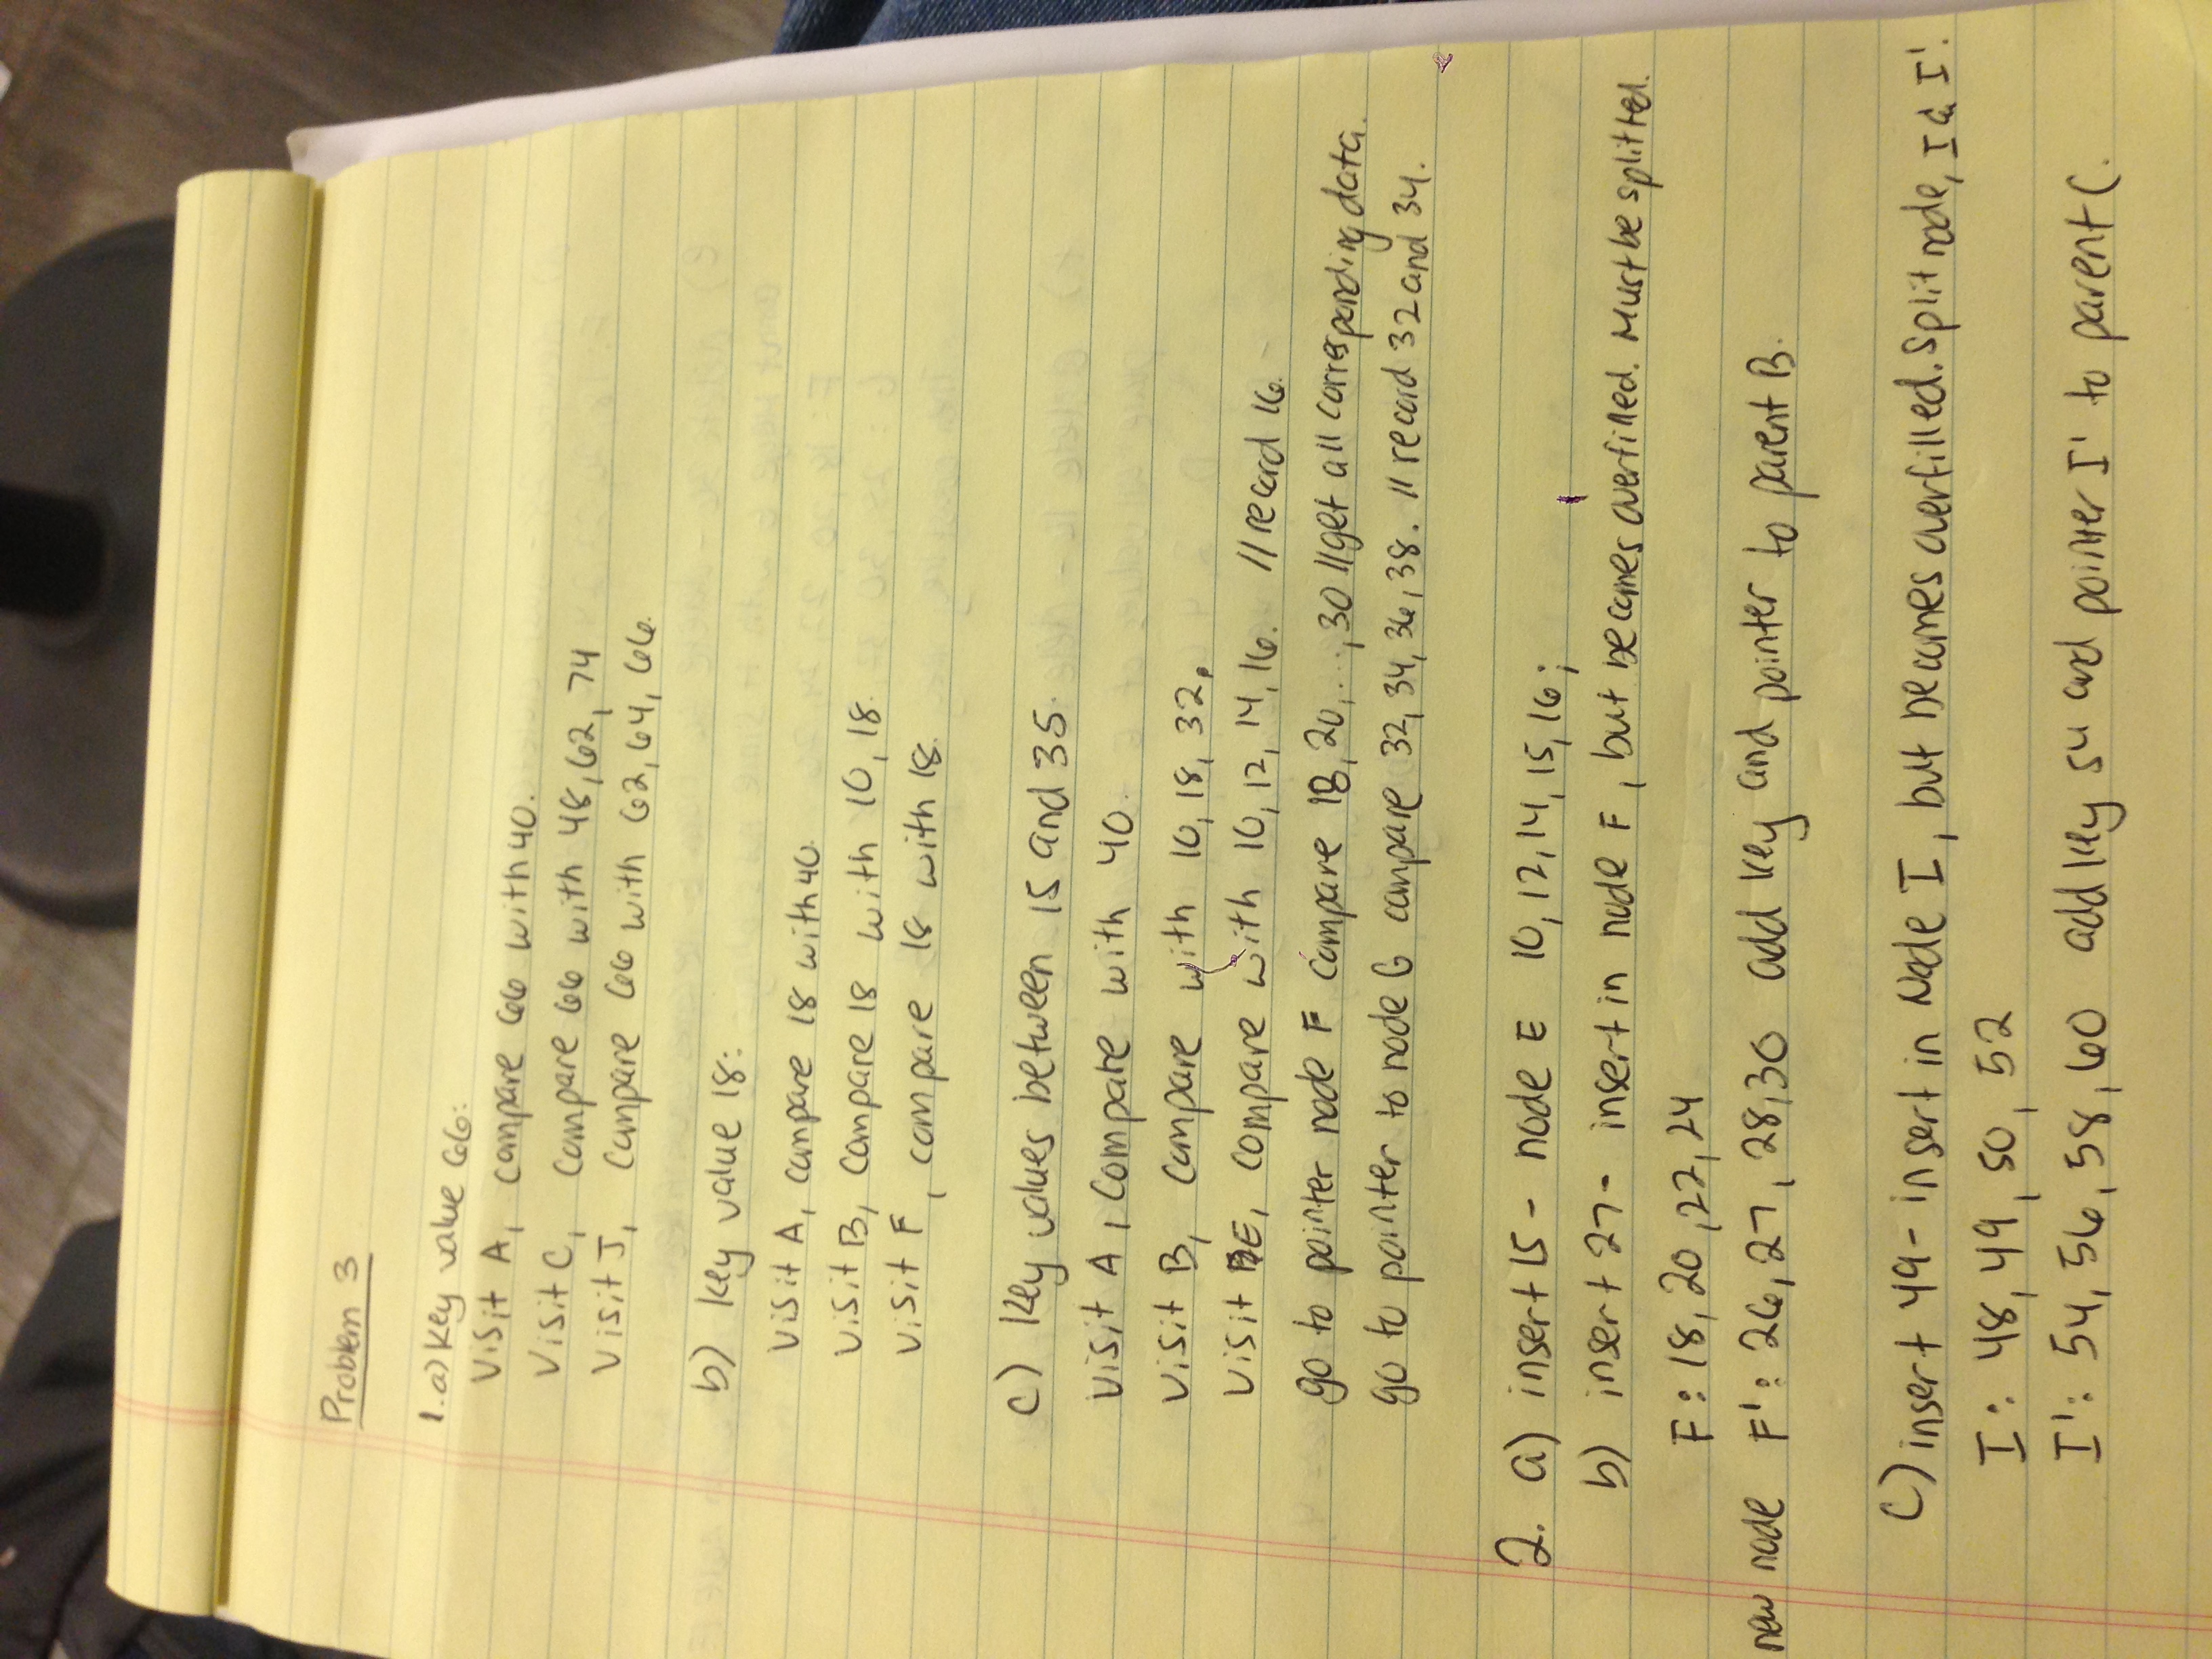 Problem 3
1. a) Key value 66:
Visit A, compare 66 with 40.
Visit C, compare 66 with 48, 62, 74
Visit J, compare 66 with 62, 64, 66.
b) Key value 18:
Visit A, compare 18 with 40.
Visit B, compare 18 with 10, 18.
Visit F, compare 18 with 18.
c) Key values between 15 and 35.
Visit A, compare with 40.
Visit B, compare with 10, 18, 32.
Visit E, compare with 10, 12, 14, 16. // record 16.
go to pointer node F compare 18, 20, ..., 30 // get all corresponding data.
go to pointer to node G compare 32, 34, 36, 38. // record 32 and 34.
2. a) insert 15 - node E 10, 12, 14, 15, 16;
b) insert 27 - insert in node F, but becomes overfilled. Must be splitted.
F: 18, 20, 22, 24
new node F': 26, 27, 28, 30 add key and pointer to parent B.
C) insert 49 - insert in Node I, but becomes overfilled. Split node, I & I'.
I: 48, 49, 50, 52
I': 54, 56, 58, 60 add key 54 and pointer I' to parent C.